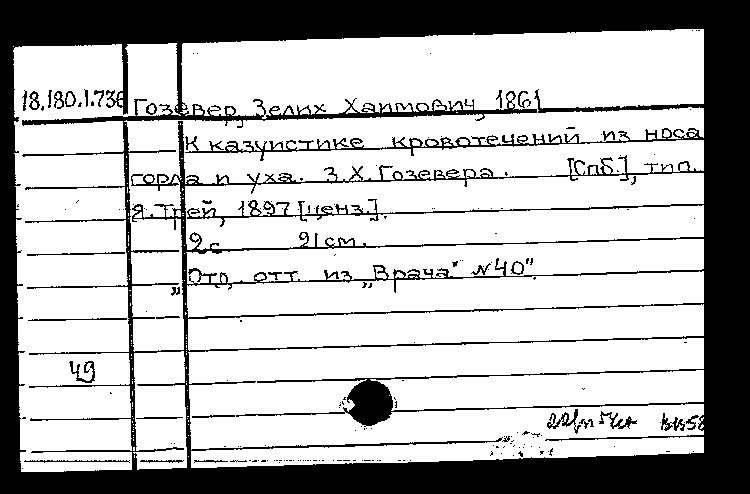 18.180.1.736 Гозевер, Зелих Хаимович, 1861
К казуистике кровотечений из носа
горла и уха. З.Х. Гозевера. [Спб.], тип.
Я. Трей, 1897 [ценз.].
2 с 21 см.
„Отд. отт. из „Врача" №40".
49